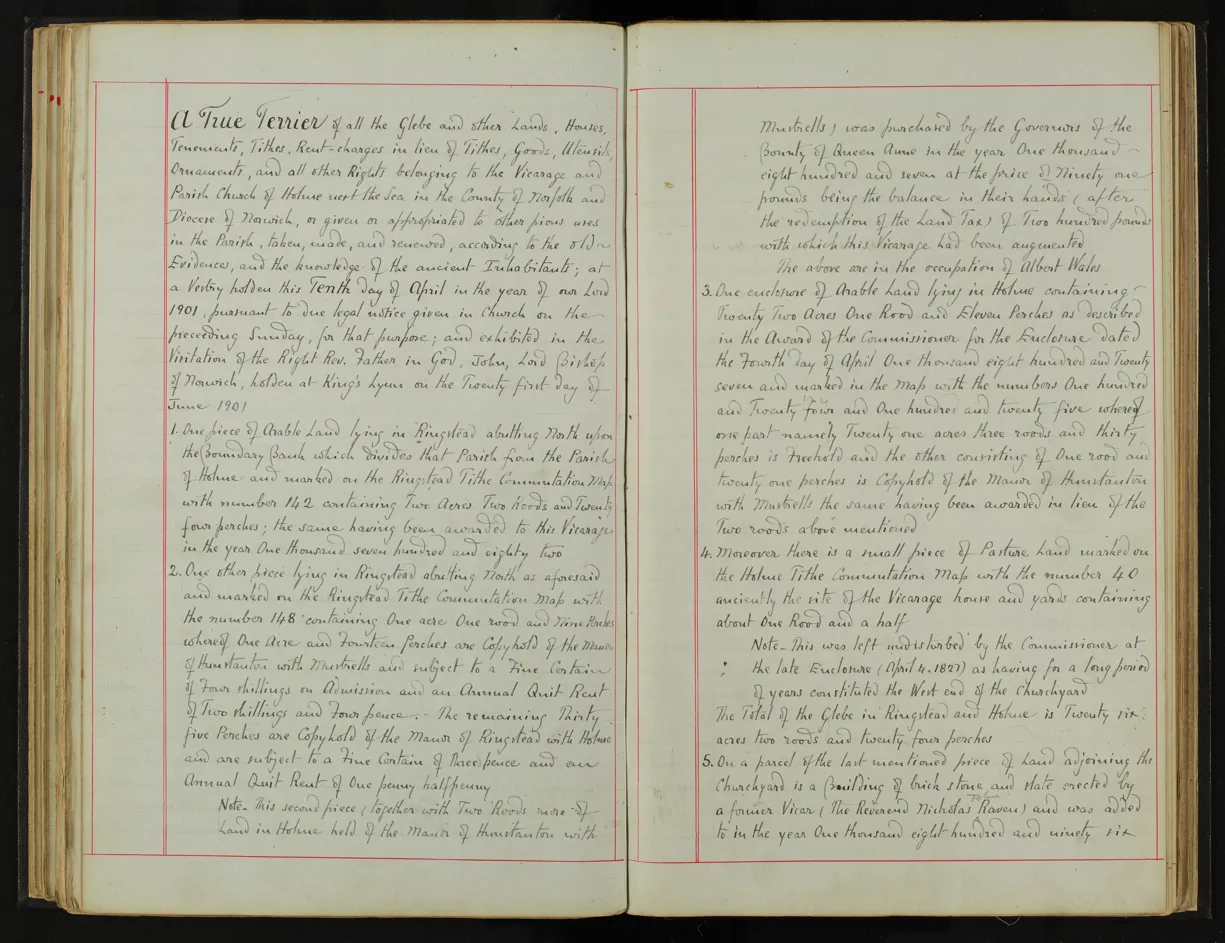 A True Terrier of all the Glebe and other Lands, Houses,
Tenements, Tithes, Rent-charges in lieu of Tithes, Goods, Utensils,
Ornaments, and all other Rights belonging to the Vicarage and
Parish Church of Holme next the Sea in the County of Norfolk and
Diocese of Norwich, or given or appropriated to other pious uses
in the Parish, taken, made, and renewed, according to the old
Evidences, and the knowledge of the ancient Inhabitants; at
a Vestry holden this Tenth day of April in the year of our Lord
1901, pursuant to due legal notice given in Church on the
preceeding Sunday, for that purpose; and exhibited in the
Visitation of the Right Rev. Father in God, John, Lord Bishop
of Norwich, holden at King's Lynn on the Twenty first day of
June 1901
1. One piece of Arable Land lying in Ringstead abutting North upon
the Boundary Bank which divides that Parish from the Parish
of Holme and marked on the Ringstead Tithe Commutation Map
with number 142 containing Two Acres Two Roods and Twenty
four perches; the same having been awarded to this Vicarage
in the year One thousand seven hundred and eighty two
2. One other piece lying in Ringstead abutting North as aforesaid
and marked on the Ringstead Tithe Commutation Map with
the number 148 containing One acre One rood and Nine Perches
whereof One Acre and Fourteen Perches are Copyhold of the Manor
of Hunstanton with Mustrells and subject to a Fine Certain
of Four shillings on Admission and an Annual Quit Rent
of Two shillings and Four pence. - The remaining Thirty
five Perches are Copyhold of the Manor of Ringstead with Holme
and are subject to a Fine Certain of Three pence and an
Annual Quit Rent of One penny halfpenny
Note - This second piece (together with Two Roods more of
Land in Holme held of the Manor of Hunstanton with
Mustrells) was purchased by the Governors of the
Bounty of Queen Anne in the year One thousand -
eight hundred and seven at the price of Ninety one
pounds being the balance in their hands (after
the redemption of the Land Tax) of Two hundred pounds
with which this Vicarage had been augmented
The above are in the occupation of Albert Wales
3. One enclosure of Arable Land lying in Holme containing -
Twenty Two Acres One Rood and Eleven Perches as described
in the Award of the Commissioner for the Enclosure dated
the Fourth day of April One thousand eight hundred and Twenty
seven and marked in the Map with the numbers One hundred
and Twenty four and One hundred and twenty five whereof
one part namely Twenty one acres three roods and thirty
perches is Freehold and the other consisting of One rood and
twenty one perches is Copyhold of the Manor of Hunstanton
with Mustrells the same having been awarded in lieu of the
Two roods above mentioned
4. Moreover there is a small piece of Pasture Land marked on
the Holme Tithe Commutation Map with the number 40
anciently the site of the Vicarage house and yards containing
about One Rood and a half
Note - This was left undisturbed by the Commissioner at
the late Enclosure (April 4. 1827) as having for a long period
of years constituted the West end of the Churchyard
The Total of the Glebe in Ringstead and Holme is Twenty six
acres two roods and twenty four perches
5. On a parcel of the last mentioned piece of Land adjoining the
Churchyard is a Building of brick stone and slate erected by
a former Vicar (The Reverend Nicholas Raven) and was added
to in the year One thousand eight hundred and ninety six